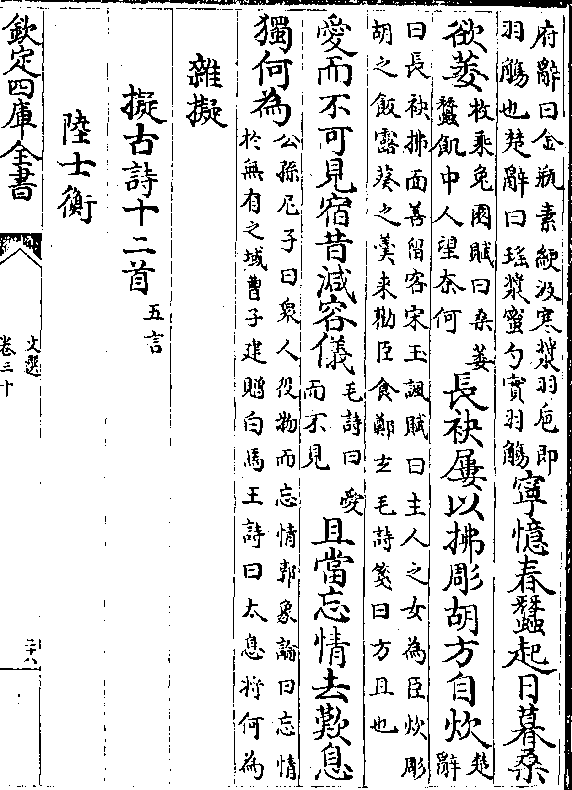 府辭曰金瓶素綆汲寒漿羽巵即
羽觴也楚辭曰瑶漿蜜勺實羽觴
寧憶春蠶起日暮桑
欲萎
枚乘兎園賦曰桑萎
蠶飢中人望奈何
長袂屢以拂彫胡方自炊
楚
辭
曰長袂拂面善留客宋玉諷賦曰主人之女為臣炊彫
胡之飯露葵之羹来勸臣食鄭玄毛詩箋曰方且也
愛而不可見宿昔減容儀
毛詩曰愛
而不見
且當忘情去歎息
獨何為
公孫尼子曰衆人役物而忘情郭象論曰忘情
於無有之域曹子建贈白馬王詩曰太息将何為
雜擬
擬古詩十二首
五言
陸士衡
欽定四庫全書
文選
卷三十
二十八